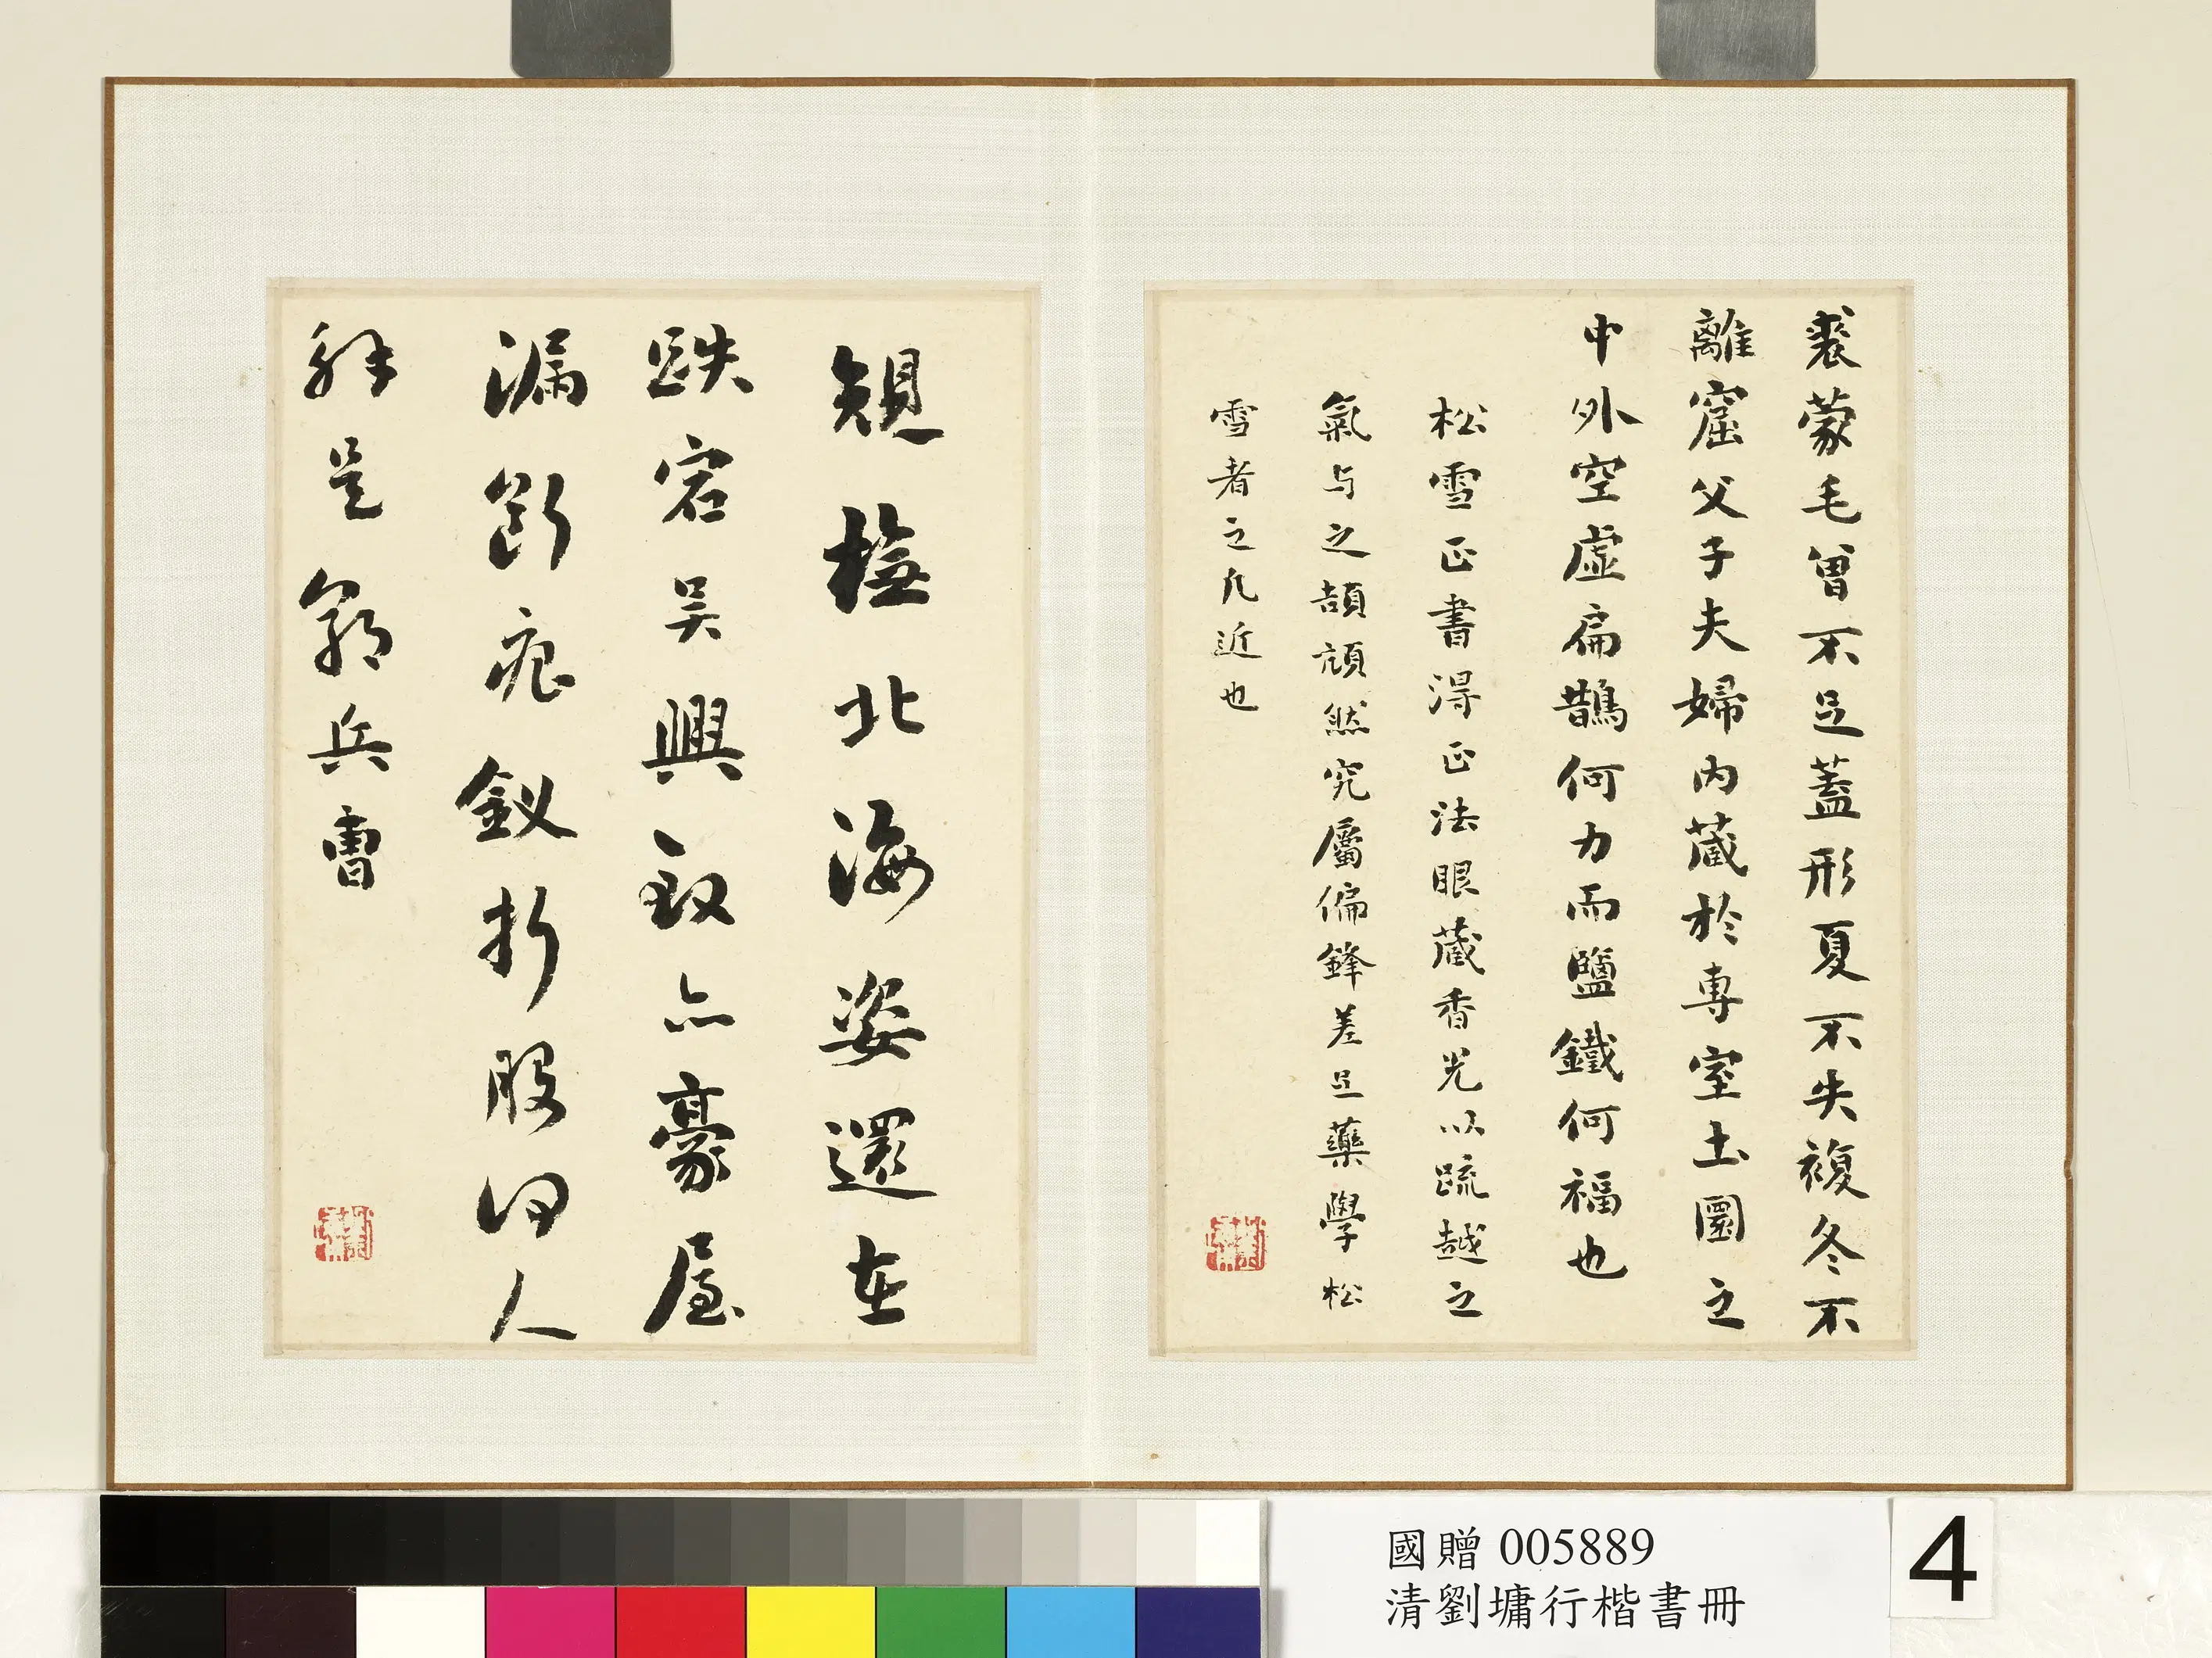 裘蒙毛曾不足蓋形夏不失複冬不
離窟父子夫婦內藏於專室土圜之
中外空虛扁鵲何力而鹽鐵何福也
松雪正書得正法眼藏香光以疏越之
氣与之頡頏然究屬偏鋒差足藥學松
雪者之凡近也
規橅北海姿還在
跌宕吳興致亦豪屋
漏斵痕釵折股何人
解是翁兵曹
國贈 005889
清劉墉行楷書冊
4